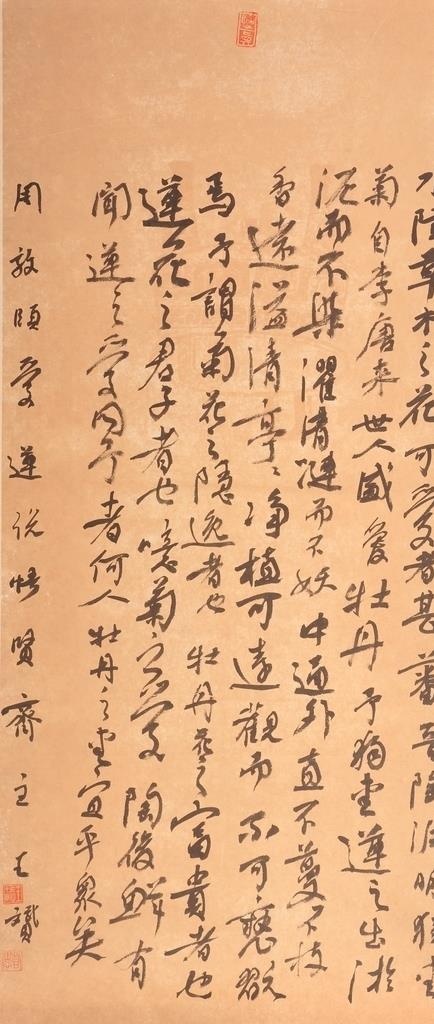 水陸草木之花可愛者甚蕃晉陶淵明獨愛
菊自李唐來世人盛愛牡丹予獨愛蓮之出淤
泥而不染濯清漣而不妖中通外直不蔓不枝
香遠溢清亭〻淨植可遠觀而不可褻翫
焉予謂菊花之隱逸者也牡丹花之富貴者也
蓮花之君子者也噫菊之愛陶後鮮有
聞蓮之愛同予者何人牡丹之愛宜乎衆矣
周敦頤愛蓮說悟賢齋主